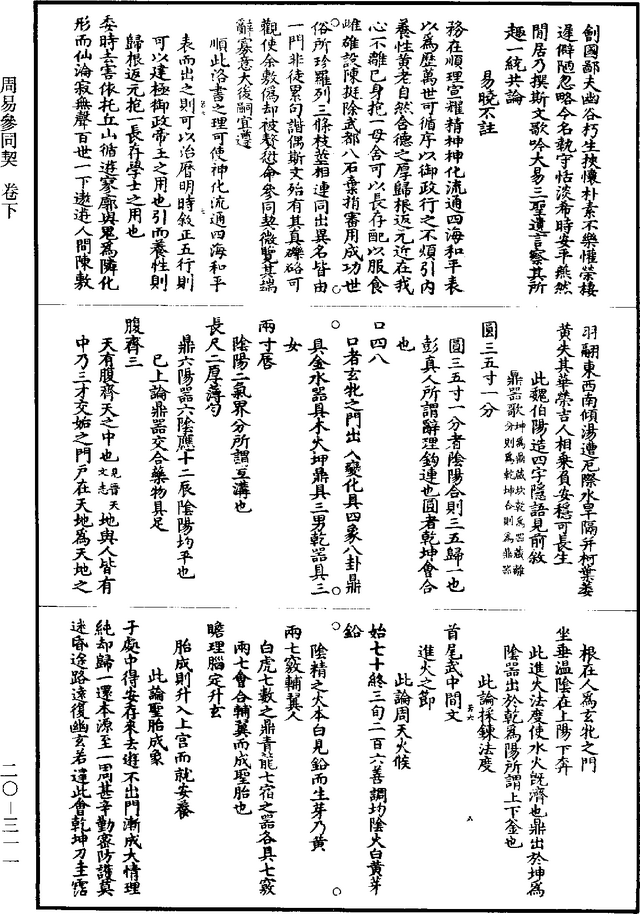 周易參同契 卷下
二〇—三一一
鄶國鄙夫幽谷朽生挾懷朴素不樂懽榮棲
遲僻陋忽略令名執守恬淡希時安平燕然
閒居乃撰斯文歌吟大易三聖遺言察其所
趣一統共論
易曉不註
務在順理宣糴精神神化流通四海和平表
以為歷萬世可循序以御政行之不煩引內
養性黃老自然含德之厚歸根返元近在我
心不離己身抱一毋舍可以長存配以服食
雌雄設陳挺除武都八石棄捐審用成功世
俗所珍羅列三條枝莖相連同出異名皆由
一門非徒累句諧偶斯文殆有其真礫硌可
觀使余敷偽却被贅愆命參同契微覽其端
辭寡意大後嗣宜遵
順此洛書之理可使神化流通四海和平
表而出之則可以治曆明時敘正五行則
可以建極御政帝王之用也引而養性則
歸根返元抱一長存學士之用也
委時去害依托丘山循遊寥廓與鬼為隣化
形而仙淪寂無聲百世一下遨遊人間陳敷
羽翮東西南傾湯遭厄際水旱隔并柯葉萎
黃失其華榮吉人相乘負安穩可長生
此魏伯陽造四字隱語見前敘
鼎器歌坤為鼎藏坎乾為器藏離分則為乾坤合則為鼎器
圓三五寸一分
圓三五寸一分者陰陽合則三五歸一也
彭真人所謂辭理鈎連也圓者乾坤會合
也
口四八
口者玄牝之門出入變化具四象八卦鼎
具金水器具木火坤鼎具三男乾器具三
女
兩寸唇
陰陽二氣界分所謂互溝也
長尺二厚薄勻
鼎六陽器六陰應十二辰陰陽均平也
已上論鼎器交合藥物具足
腹齊三
天有腹齊天之中也見晉天文志地與人皆有
中乃三才交姤之門戶在天地為天地之
根在人為玄牝之門
坐垂溫陰在上陽下奔
此進火法度使水火既濟也鼎出於坤為
陰器出於乾為陽所謂上下釜也
此論採鍊法度
首尾武中間文
進火之節
此論周天火候
始七十終三旬二百六善調均陰火白黃芽
鉛
陰精之火本白見鉛而生芽乃黃
兩七竅輔翼人
白虎七數之鼎青龍七宿之器各具七竅
兩七會合輔翼而成聖胎也
贍理腦定升玄
胎成則升入上宮而就安養
此論聖胎成象
子處中得安存來去遊不出門漸成大情理
純却歸一還本源至一周甚辛勤密防護莫
迷昏途路遠復幽玄若達此會乾坤刀圭霑